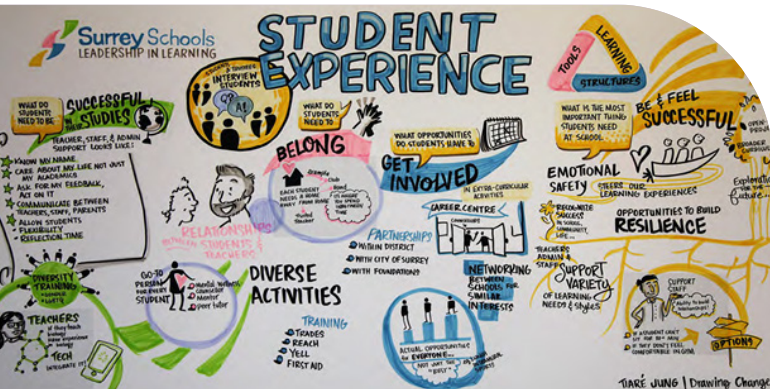 Surrey Schools
LEADERSHIP IN LEARNING
STUDENT
EXPERIENCE
STUDENTS
INTERVIEW
STUDENTS
Q?
A!
TOOLS
LEARNING
STRUCTURES
WHAT DO
STUDENTS
NEED TO BE
SUCCESSFUL
IN THEIR
STUDIES
TEACHER, STAFF, & ADMIN
SUPPORT LOOKS LIKE:
KNOW MY NAME
CARE ABOUT MY LIFE NOT JUST
MY ACADEMICS
ASK FOR MY FEEDBACK,
ACT ON IT
COMMUNICATE BETWEEN
TEACHERS, STAFF, PARENTS
ALLOW STUDENTS
FLEXIBILITY
REFLECTION TIME
DIVERSITY
TRAINING
TEACHERS
if they teach
biology
have experience
in biology
TECH
INTEGRATE IT!
WHAT DO
STUDENTS
NEED TO
BELONG
EACH STUDENT
NEEDS A HOME
AWAY FROM HOME
Club
Band
Trusted
Teacher
TIME
RELATIONSHIPS
BETWEEN STUDENTS &
TEACHERS
GO-TO
PERSON
FOR EVERY
STUDENT
Mental Wellness
Counsellor
Mentor
Peer tutor
DIVERSE
ACTIVITIES
TRAINING
TRADES
REACH
YELL
FIRST AID
WHAT OPPORTUNITIES
DO STUDENTS HAVE TO
GET
INVOLVED
IN EXTRA-CURRICULAR
ACTIVITIES
CAREER CENTRE
PARTNERSHIPS
WITHIN DISTRICT
WITH CITY OF SURREY
WITH FOUNDATIONS
NETWORKING
BETWEEN
SCHOOLS FOR
SIMILAR
INTERESTS
ACTUAL OPPORTUNITIES
for EVERYONE...
NOT JUST THE
"EASY"
WHAT IS THE MOST
IMPORTANT THING
STUDENTS NEED
AT SCHOOL
BE & FEEL
SUCCESSFUL
EMOTIONAL
SAFETY
STEERS OUR
LEARNING EXPERIENCES
RECOGNIZE
SUCCESS
IN SCHOOL,
COMMUNITY,
LIFE...
OPPORTUNITIES TO BUILD
RESILIENCE
BROADER
future...
TEACHERS
ADMIN &
STAFF
SUPPORT
VARIETY
OF LEARNING
NEEDS & STYLES
SUPPORT
STAFF
IF A STUDENT CAN'T
SIT FOR 80+ MIN
IF THEY DON'T FEEL
COMFORTABLE IN GYM
OPTIONS
TIARÉ JUNG | Drawing Change